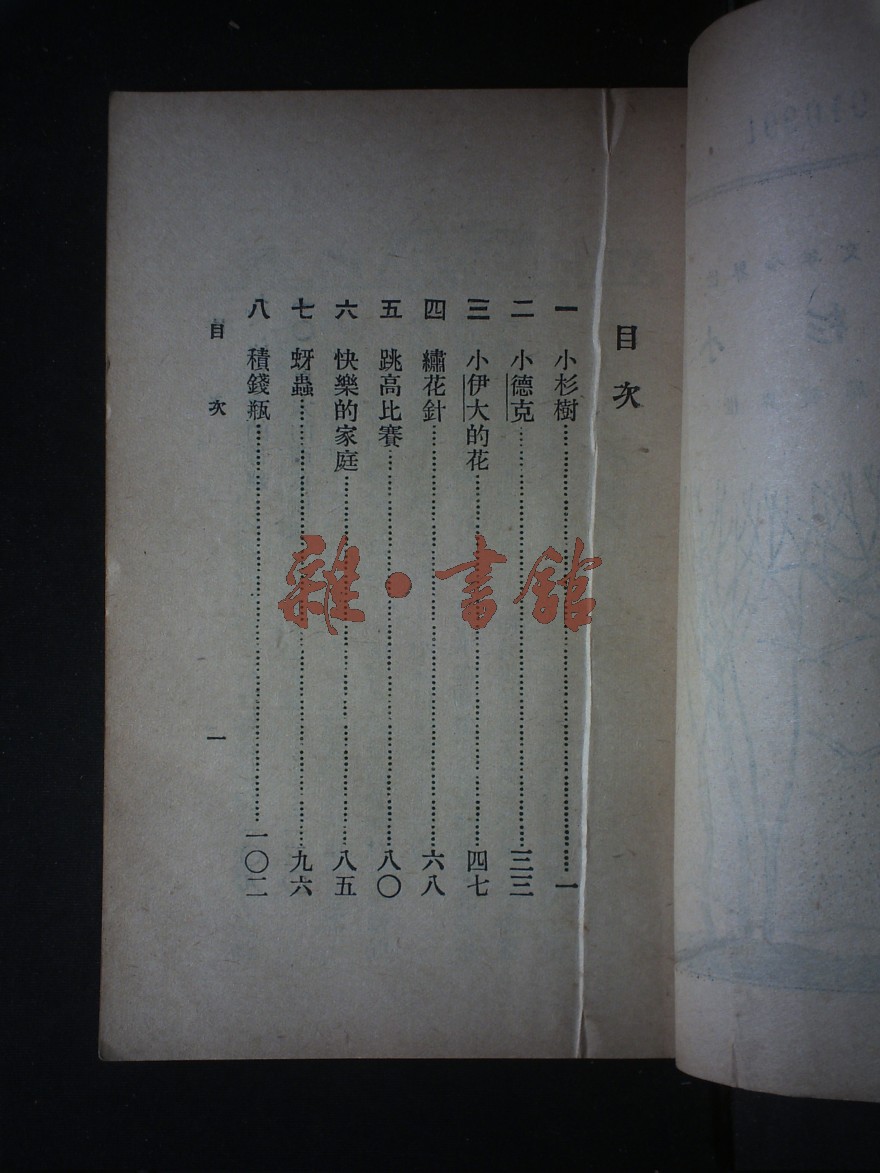 目次
一 小杉樹…………一
二 小德克…………三三
三 小伊大的花…………四七
四 繡花針…………六八
五 跳高比賽…………八〇
六 快樂的家庭…………八五
七 蚜蟲…………九六
八 積錢瓶…………一〇二
目次 一
雜·書館